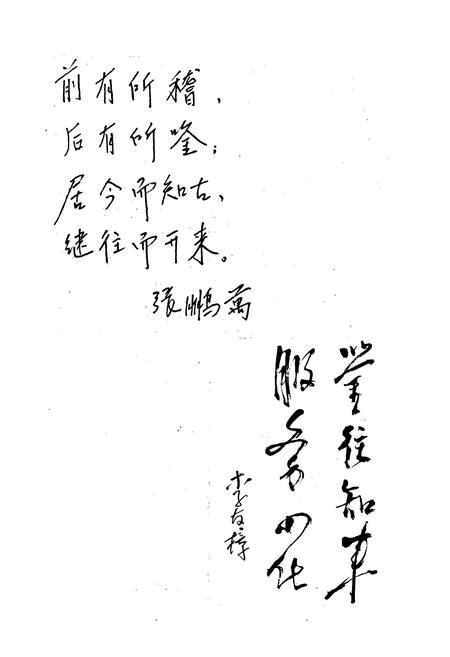 前有所稽，
后有所鉴；
居今而知古，
继往而开来。
張鵬萬
鉴往知来
服务四化
李友梓